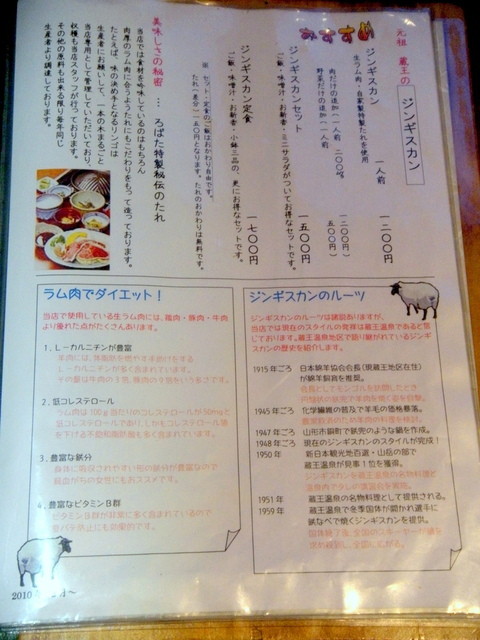 元祖 蔵王の
ジンギスカン
おすすめ
ジンギスカン 一人前 一二〇〇円
生ラム肉・自家製特製たれを使用
肉だけの追加(一人前 二〇〇g 一二〇〇円)
野菜だけの追加(一人前 五〇〇円)
ジンギスカンセット 一五〇〇円
ご飯・味噌汁・お新香・ミニサラダがついてお得なセットです。
ジンギスカン定食 一七〇〇円
ご飯・味噌汁・お新香・小鉢三品の、更にお得なセットです。
※ セット、定食のご飯はおかわり自由です。
美味しさの秘密 … ろばた特製秘伝のたれ
当店では食材を吟味しているのはもちろん
肉厚のラム肉に合うようたれにもこだわりをもって造っております。
たとえば、味の決め手となるリンゴは
生産者にお願いして、一本の木まるごと
当店専用として管理していただいており、
収穫も当店スタッフが行っております。
その他の原料も出来る限り毎年同じ
生産者より調達しております。
ラム肉でダイエット!
当店で使用している生ラム肉には、鶏肉・豚肉・牛肉
より優れた点がたくさんあります。
1、L-カルニチンが豊富
羊肉には、体脂肪を燃やす手助けをする
L-カルニチンが多く含まれています。
その量は牛肉の3倍、豚肉の9倍もあります。
2、低コレステロール
3、豊富な鉄分
身体に吸収されやすい形の鉄分が豊富なので
貧血がちの女性にもおススメです。
4、豊富なビタミンB群
ビタミンB群が非常に多く含まれているので、
夏バテ防止にも効果的です。
ジンギスカンのルーツ
ジンギスカンのルーツは諸説ありますが、
当店では現在のスタイルの発祥は蔵王温泉であると信
じております。蔵王温泉地区で語り継がれているジンギス
カンの歴史を紹介します。
1915年ごろ 日本綿羊協会会長(現蔵王地区在住)
が綿羊飼育を推奨。
1945年ごろ 化学繊維の普及で羊毛の価格暴落。
1947年ごろ 山形市銅町で鉄兜のような鍋を作成。
1948年ごろ 現在のジンギスカンのスタイルが完成!
1950年 新日本観光地百選・山岳の部で
蔵王温泉が見事1位を獲得。
1951年 蔵王温泉の名物料理として提供される。
1959年 蔵王温泉で冬季国体が開かれ選手に
鉄なべで焼くジンギスカンを提供。
2010年
月~